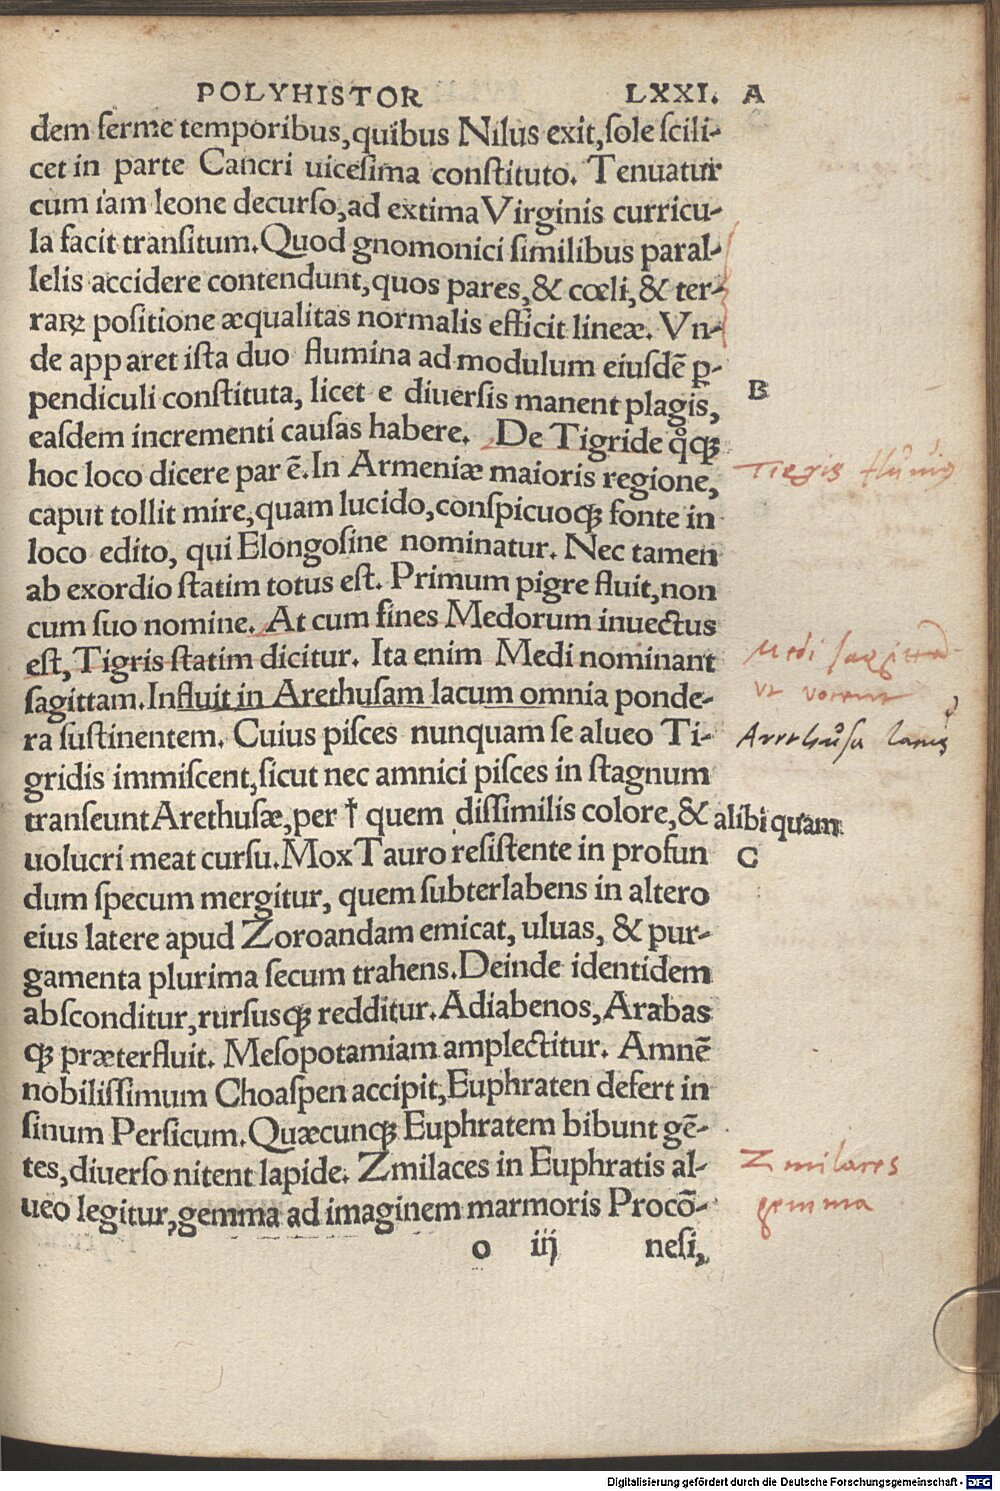 POLYHISTOR LXXI. A
dem ferme temporibus, quibus Nilus exit, ſole ſcili-
cet in parte Cancri uiceſima conſtituto. Tenuatur
cum iam leone decurſo, ad extima Virginis curricu-
la facit tranſitum. Quod gnomonici ſimilibus paral-
lelis accidere contendunt, quos pares, & cœli, & ter-
raꝝ poſitione æqualitas normalis efficit lineæ. Vn-
de apparet iſta duo flumina ad modulum eiuſdē ꝑ-
pendiculi conſtituta, licet e diuerſis manent plagis,
B
eaſdem incrementi cauſas habere. De Tigride qͦqꝫ
hoc loco dicere par ē. In Armeniæ maioris regione,
Tiegis flūuiꝰ
caput tollit mire, quam lucido, conſpicuoqꝫ fonte in
loco edito, qui Elongoſine nominatur. Nec tamen
ab exordio ſtatim totus eſt. Primum pigre fluit, non
cum ſuo nomine. At cum fines Medorum inuectus
eſt, Tigris ſtatim dicitur. Ita enim Medi nominant
Medi
ſagittam. Influit in Arethuſam lacum omnia ponde-
ra ſuſtinentem. Cuius piſces nunquam ſe alueo Ti-
Arethuſa
gridis immiſcent, ſicut nec amnici piſces in ſtagnum
tranſeunt Arethuſæ, per † quem diſſimilis colore, &
alibi quam
uolucri meat curſu. Mox Tauro reſiſtente in profun
C
dum ſpecum mergitur, quem ſubterlabens in altero
eius latere apud Zoroandam emicat, uluas, & pur-
gamenta plurima ſecum trahens. Deinde identidem
abſconditur, rurſusqꝫ redditur. Adiabenos, Arabas
qꝫ præterfluit. Meſopotamiam amplectitur. Amnē
nobiliſſimum Choaſpen accipit, Euphraten defert in
ſinum Perſicum. Quæcunqꝫ Euphratem bibunt gē-
tes, diuerſo nitent lapide. Zmilaces in Euphratis al-
Zmilaces
ueo legitur, gemma ad imaginem marmoris Procō-
gemma
o iij neſi,
Digitalisierung gefördert durch die Deutsche Forschungsgemeinschaft - DFG